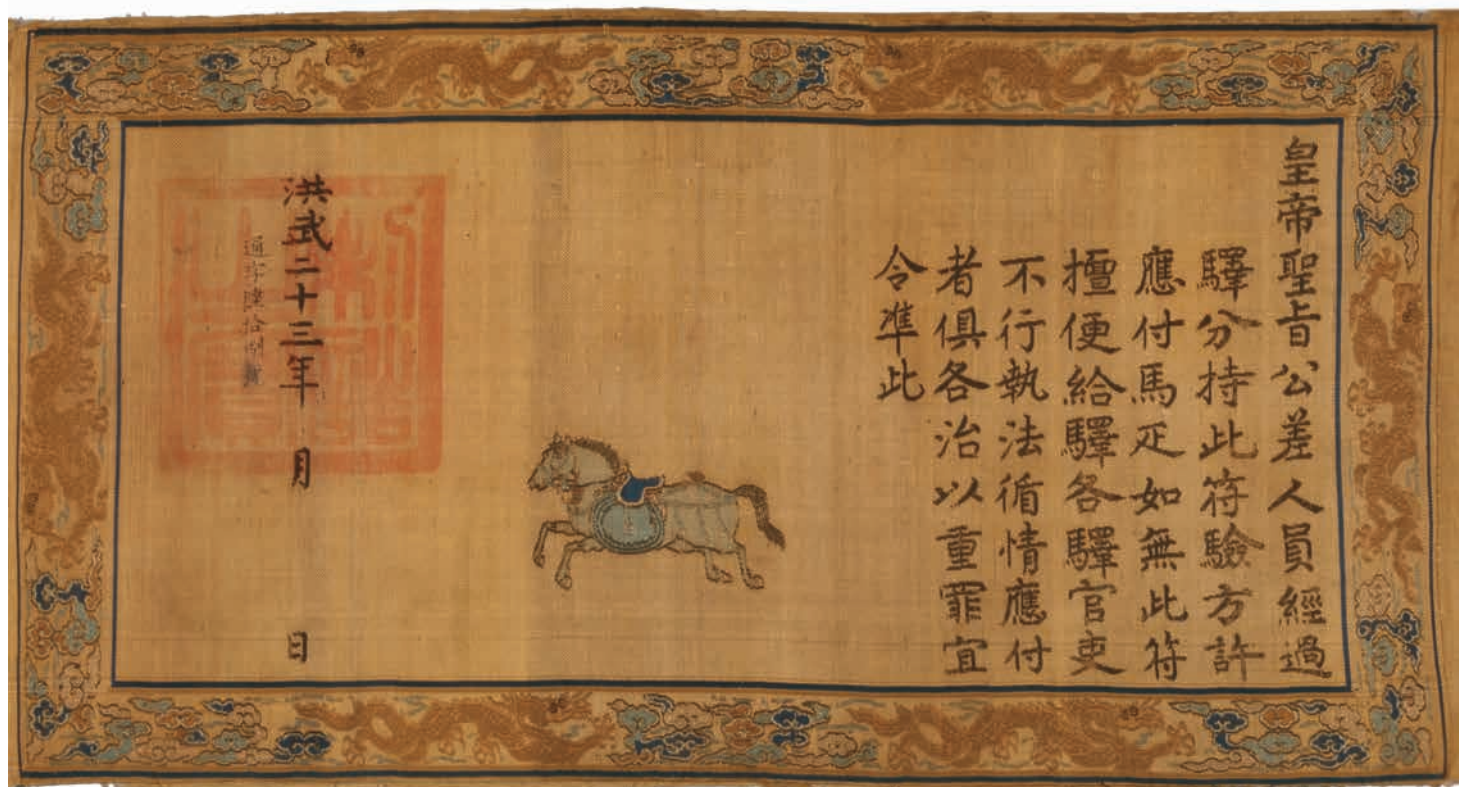 皇帝聖旨公差人員經過
驛分持此符驗方許
應付馬疋如無此符
擅便給驛各驛官吏
不行執法循情應付
者俱各治以重罪宜
令准此
洪武二十三年 月 日
通字陸拾捌號